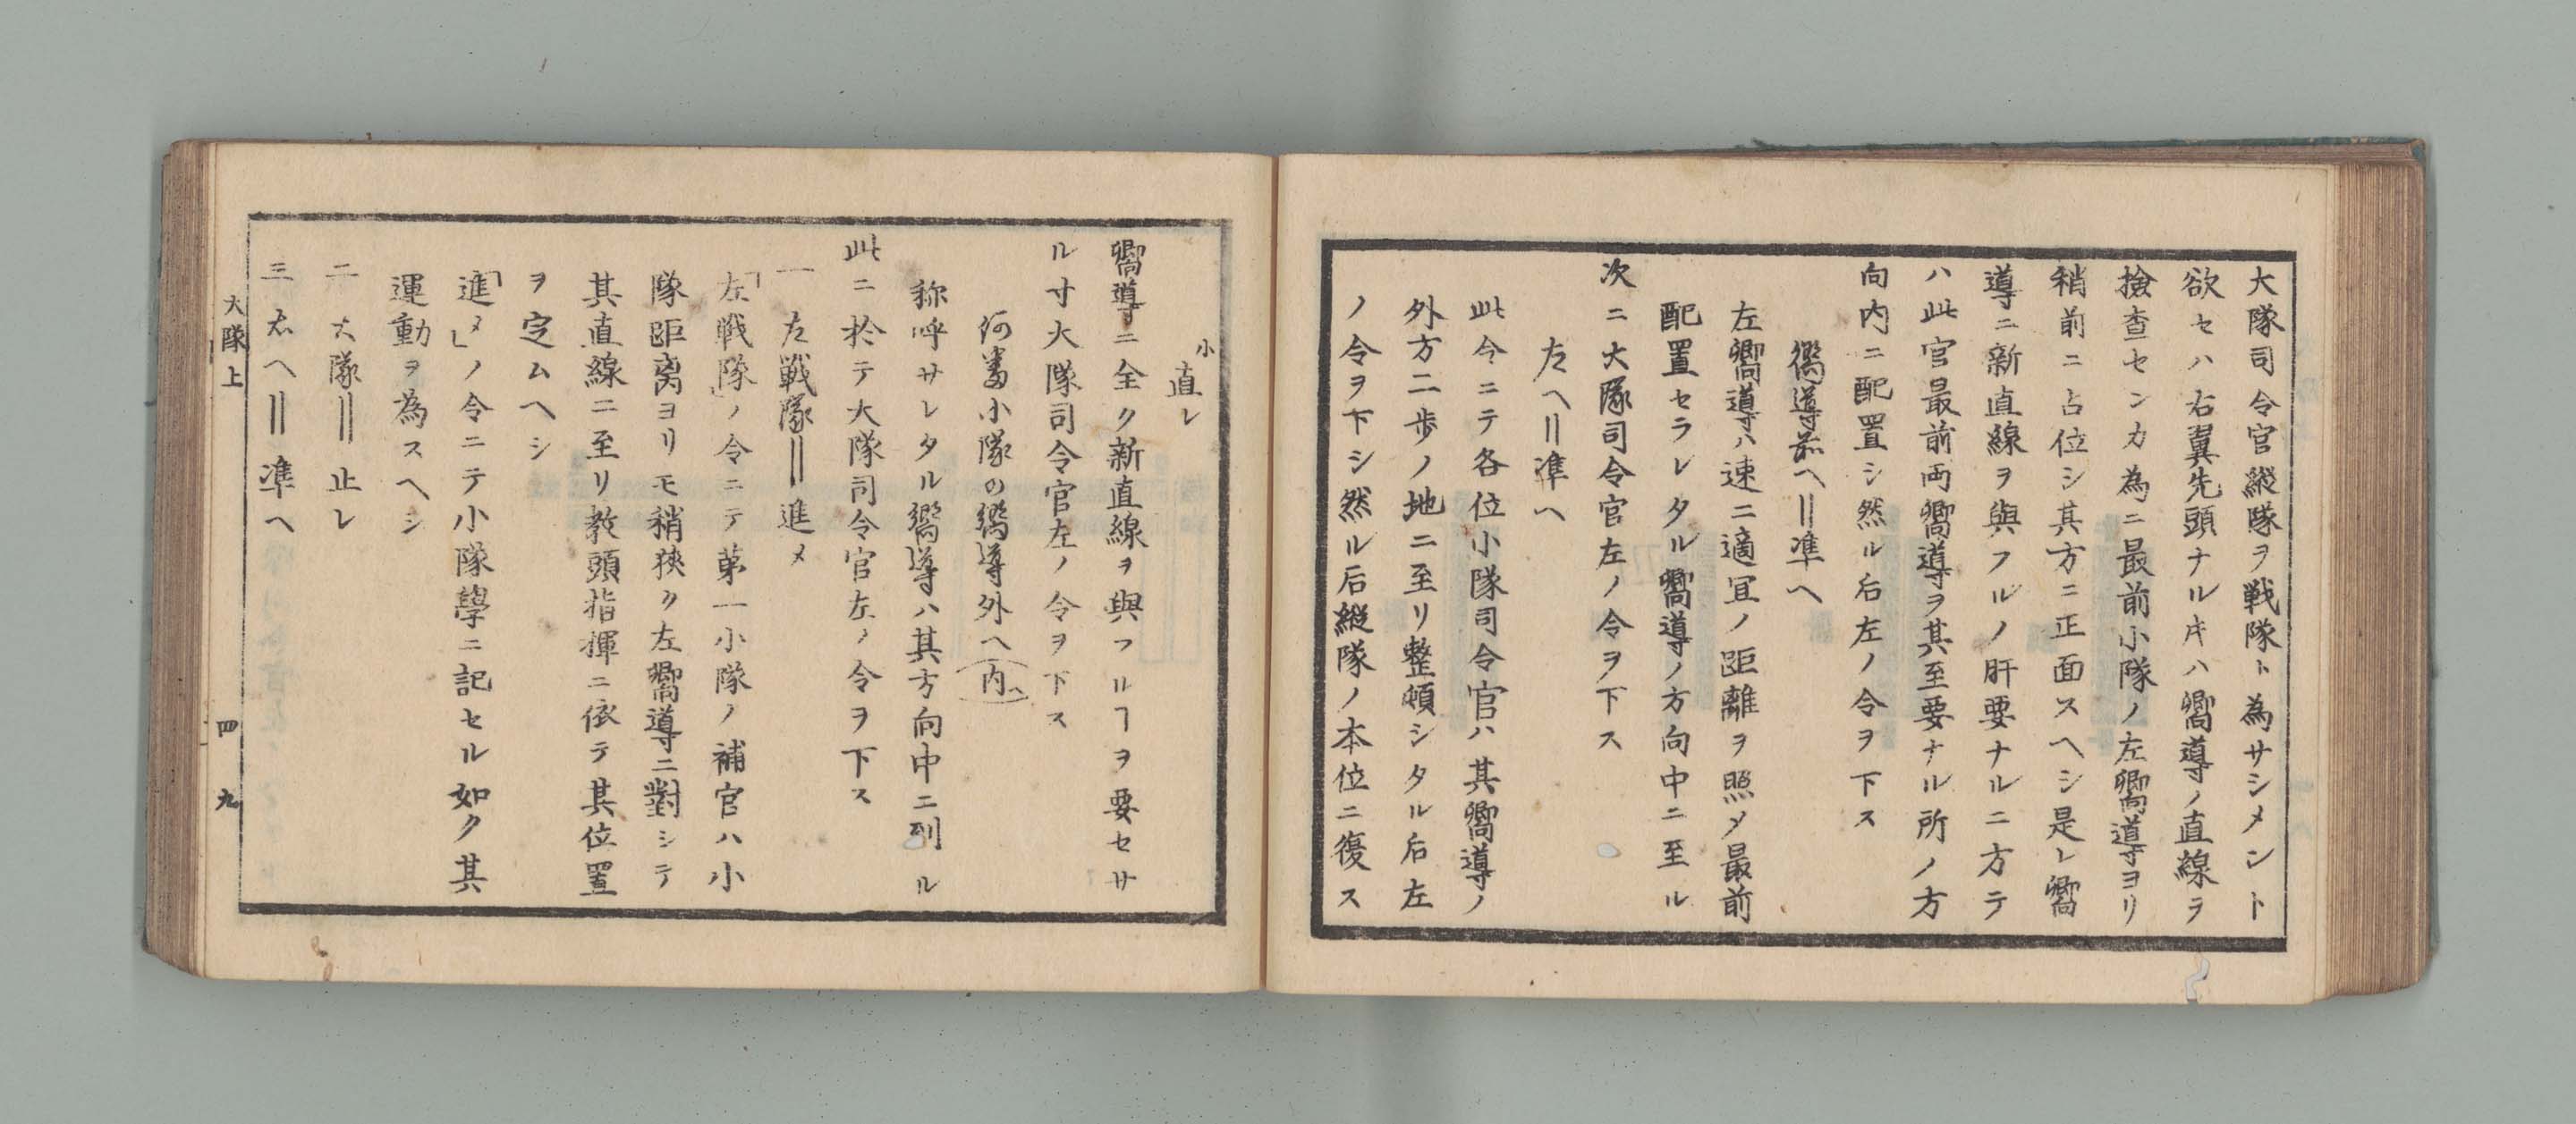 大隊司令官縦隊ヲ戦隊ト為サシメント
欲セハ右翼先頭ナルキハ嚮導ノ直線ヲ
撿查センカ為ニ最前小隊ノ左嚮導ヨリ
稍前ニ占位シ其方ニ正面スヘシ是レ嚮
導ニ新直線ヲ與フルノ肝要ナルニ方テ
ハ此官最前両嚮導ヲ其至要ナル所ノ方
向内ニ配置シ然ル后左ノ令ヲ下ス
嚮導前ヘ‖凖ヘ
左嚮導ハ速ニ適冝ノ距離ヲ照メ最前
配置セラレタル嚮導ノ方向中ニ至ル
次ニ大隊司令官左ノ令ヲ下ス
左ヘ‖凖ヘ
此令ニテ各位小隊司令官ハ其嚮導ノ
外方二歩ノ地ニ至リ整頓シタル后左
ノ令ヲ下シ然ル后縦隊ノ本位ニ復ス
小直レ
嚮導ニ全ク新直線ヲ與フルヿヲ要セサ
ル寸大隊司令官左ノ令ヲ下ス
何番小隊の嚮導外ヘ(内ヘ)
称呼サレタル嚮導ハ其方向中ニ列ル
此ニ於テ大隊司令官左ノ令ヲ下ス
一 左戦隊‖進メ
「左戦隊」ノ令ニテ第一小隊ノ補官ハ小
隊距离ヨリモ稍狹ク左嚮導ニ對シテ
其直線ニ至リ教頭指揮ニ依テ其位置
ヲ定ムヘシ
「進メ」ノ令ニテ小隊學ニ記セル如ク其
運動ヲ為スヘシ
二 大隊‖止レ
三 右ヘ‖凖ヘ
大隊上 四 九